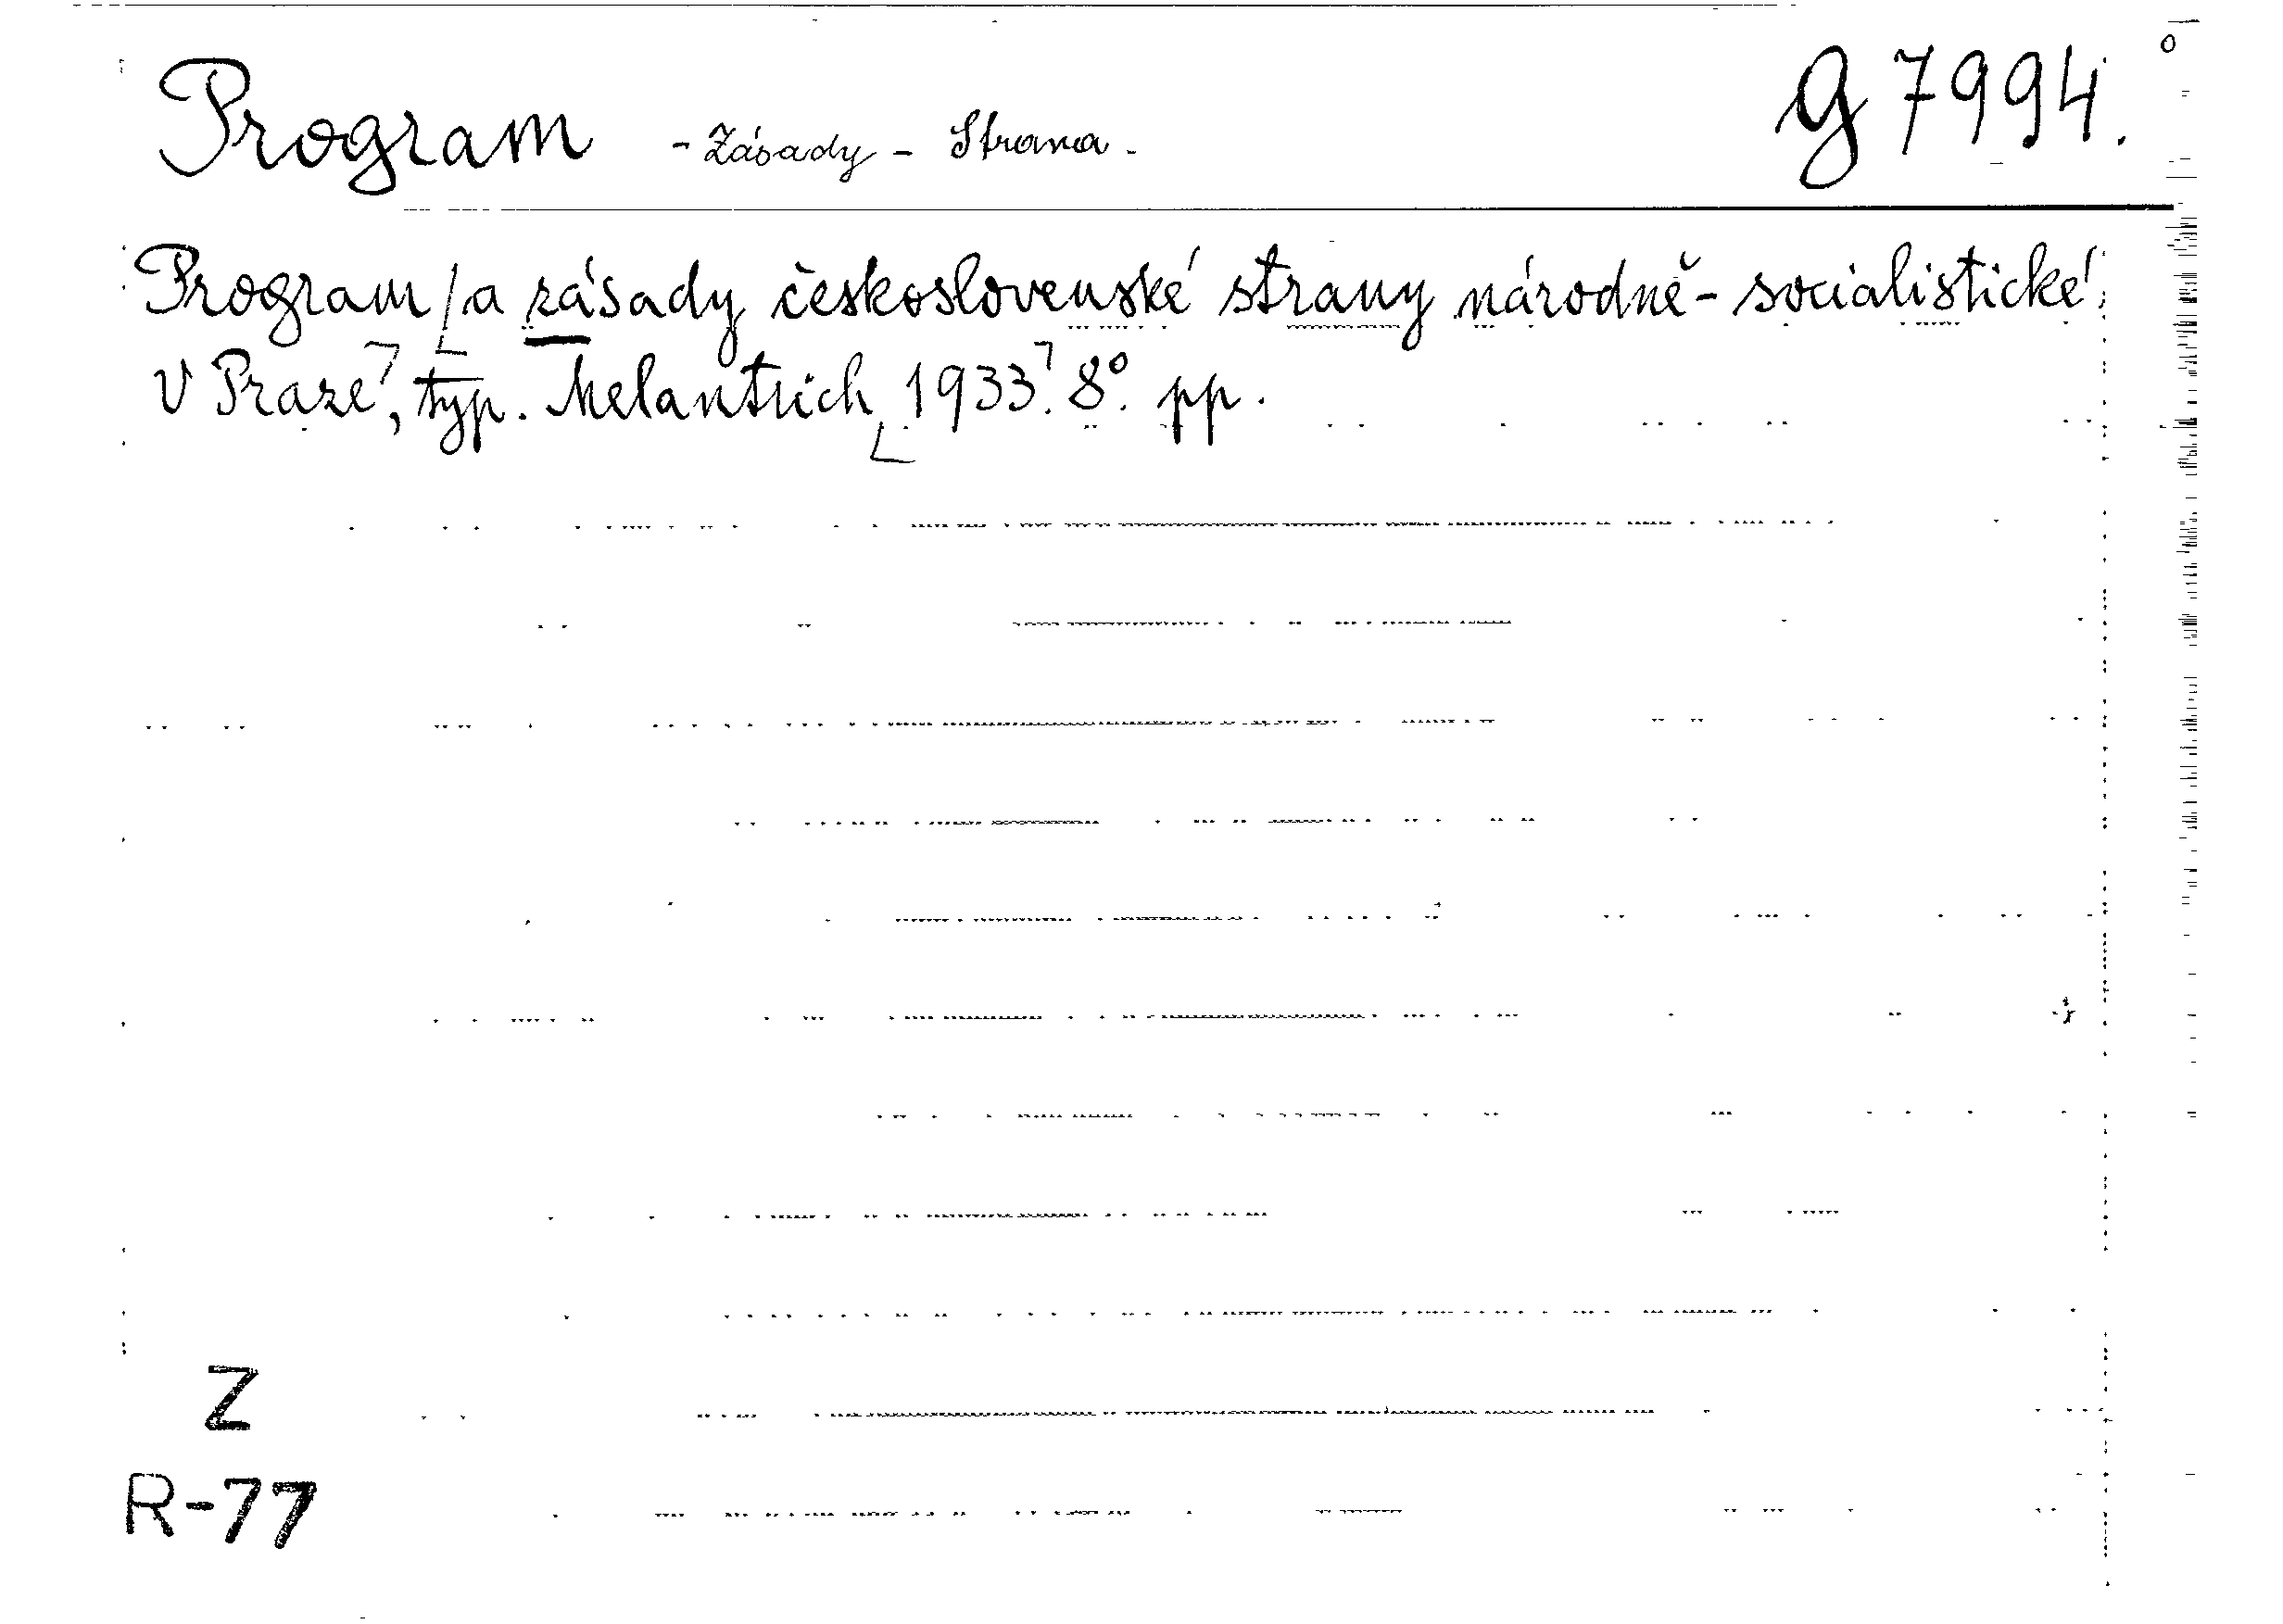 Program - Zásady - Strana - G 7994.
Program a zásady československé strany národně-socialistické.
V Praze, typ. Melantrich 1933. 8°. pp.
Z
R-77